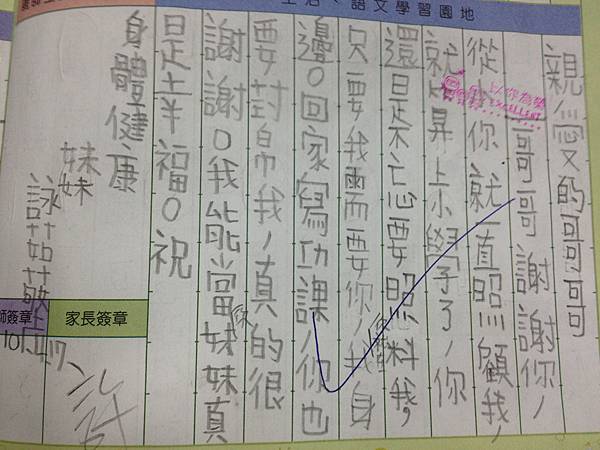 語文學習園地
親愛的哥哥
哥哥謝謝你，
從小你就一直照顧我，
就昇上小學了，你
還是不忘要照料我，
只要我需要你，我身
邊。回家寫功課，你也
要幫我，真的很
謝謝。我能當你妹妹真
是幸福。祝
身體健康
妹妹
詠茹敬上
以你為榮
EXCELLENT
師簽章
家長簽章
許